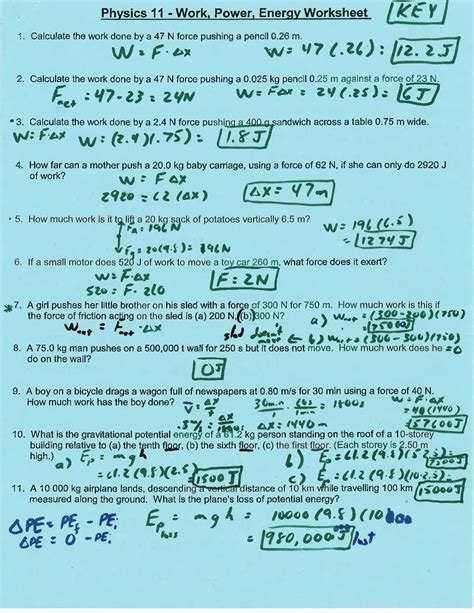 Physics 11 - Work, Power, Energy Worksheet KEY
1. Calculate the work done by a 47 N force pushing a pencil 0.26 m.
W = F·Δx W = 47 (.26) = 12.2 J
2. Calculate the work done by a 47 N force pushing a 0.025 kg pencil 0.25 m against a force of 23 N.
Fnet = 47-23 = 24N W = FΔx = 24(.25) = 6 J
*3. Calculate the work done by a 2.4 N force pushing a 400 g sandwich across a table 0.75 m wide.
W = F·Δx W = (2.4)(.75) = 1.8 J
4. How far can a mother push a 20.0 kg baby carriage, using a force of 62 N, if she can only do 2920 J
of work?
W = F Δx
2920 = 62 (Δx) Δx = 47m
5. How much work is it to lift a 20 kg sack of potatoes vertically 6.5 m?
FA = 196N W = 196(6.5)
Fg = 20(9.8) = 196N = 1274 J
6. If a small motor does 520 J of work to move a toy car 260 m, what force does it exert?
W = F·Δx
520 = F·260 F = 2N
*7. A girl pushes her little brother on his sled with a force of 300 N for 750 m. How much work is this if
the force of friction acting on the sled is (a) 200 N, (b) 300 N?
a) Wnet = (300-200)(750)
= 75000 J
Wnet = Fnet·Δx
sled doesn't move ← b) Wnet = (300-300)(750)
= 0
8. A 75.0 kg man pushes on a 500,000 t wall for 250 s but it does not move. How much work does he
do on the wall?
0 J
9. A boy on a bicycle drags a wagon full of newspapers at 0.80 m/s for 30 min using a force of 40 N.
How much work has the boy done?
W = F·Δx
= 40(1440)
= 57600 J
Δx = 1440 m
10. What is the gravitational potential energy of a 61.2 kg person standing on the roof of a 10-storey
building relative to (a) the tenth floor, (b) the sixth floor, (c) the first floor. (Each storey is 2.50 m
high.)
a) Ep = m g h
= 61.2 (9.8)(2.5)
= 1500 J
b) Ep
c) Ep
= 15000 J
11. A 10 000 kg airplane lands, descending a vertical distance of 10 km while travelling 100 km
measured along the ground. What is the plane's loss of potential energy?
ΔPE = PEf - PEi
ΔPE = 0 - PEi
Ep loss = m g h = 10000 (9.8) (10000
= 980,000,000 J lost